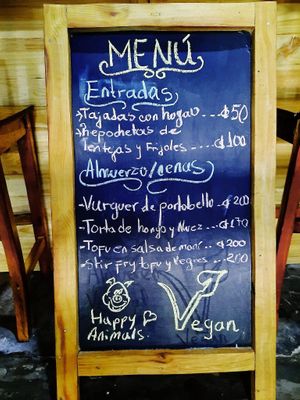 MENÚ
Entradas
-Tajadas con hogao ---₡50
-Repochetas de
Lentejas y Frijoles. --₡100
Almuerzo/cenas
-Vurguer de portobello -₡200
-Torta de hongo y Nuez .. ₡170
-Tofu en salsa de maní .. ₡200
-Stir Fry tofu y Vegies --- 200
Happy
Animals.
Vegan